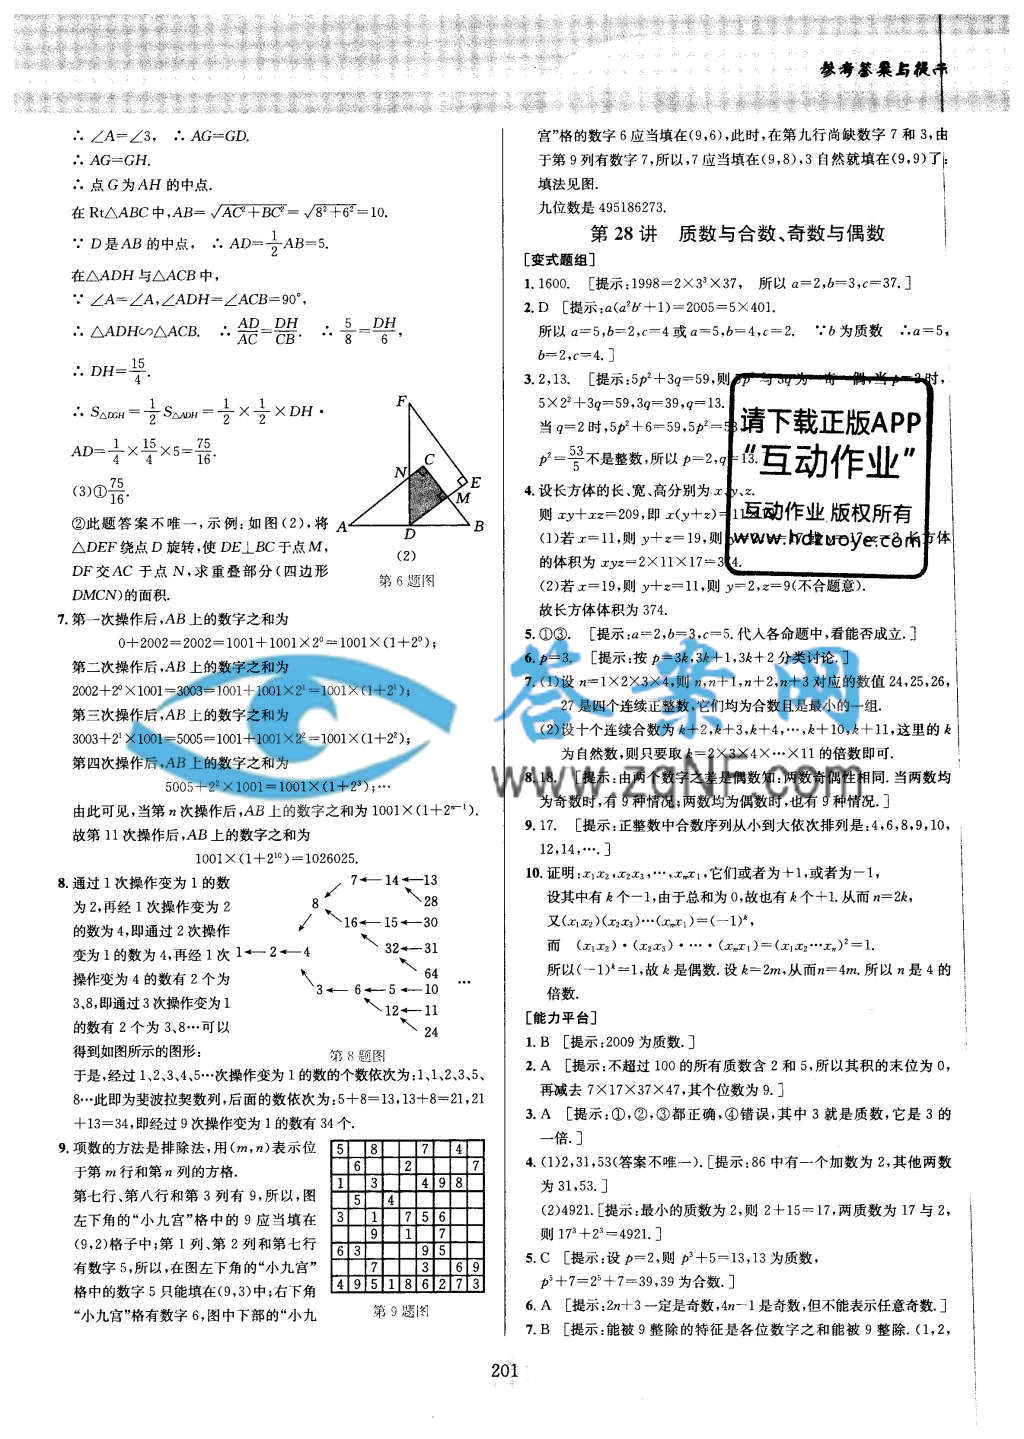 参考答案与提示
∴ ∠A=∠3, ∴ AG=GD.
∴ AG=GH.
∴ 点G为AH 的中点.
在 Rt△ABC 中,AB=√AC²+BC²=√8²+6²=10.
∵ D是AB 的中点, ∴ AD=1/2AB=5.
在△ADH 与△ACB 中,
∵ ∠A=∠A,∠ADH=∠ACB=90°,
∴ △ADH∽△ACB. ∴ AD/AC=DH/CB. ∴ 5/8=DH/6,
∴ DH=15/4.
∴ S△DGH=1/2S△ADH=1/2×1/2×DH·
AD=1/4×15/4×5=75/16.
(3)①75/16.
②此题答案不唯一,示例:如图(2),将
△DEF绕点D旋转,使 DE⊥BC于点M,
DF交AC 于点 N,求重叠部分(四边形
DMCN)的面积.
F
C
N
E
M
A
D
B
(2)
第6题图
7. 第一次操作后,AB上的数字之和为
0+2002=2002=1001+1001×2⁰=1001×(1+2⁰);
第二次操作后,AB上的数字之和为
2002+2⁰×1001=3003=1001+1001×2¹=1001×(1+2¹);
第三次操作后,AB上的数字之和为
3003+2¹×1001=5005=1001+1001×2²=1001×(1+2²);
第四次操作后,AB上的数字之和为
5005+2²×1001=1001×(1+2³);…
由此可见,当第n次操作后,AB上的数字之和为1001×(1+2ⁿ⁻¹).
故第11次操作后,AB上的数字之和为
1001×(1+2¹⁰)=1026025.
8. 通过1次操作变为1的数
为2,再经1次操作变为2
的数为4,即通过2次操作
变为1的数为4,再经1次
操作变为4的数有2个为
3、8,即通过3次操作变为1
的数有2个为3、8…可以
得到如图所示的图形:
7←14←13
28
8
16←15←30
32←31
1←2←4
64
3←6←5←10
…
12←11
24
第8题图
于是,经过1、2、3、4、5…次操作变为1的数的个数依次为:1、1、2、3、5、
8…此即为斐波拉契数列,后面的数依次为:5+8=13,13+8=21,21
+13=34,即经过9次操作变为1的数有34个.
9. 项数的方法是排除法,用(m,n)表示位
于第m行和第n列的方格.
第七行、第八行和第3列有9,所以,图
左下角的“小九宫”格中的9应当填在
(9,2)格子中;第1列、第2列和第七行
有数字5,所以,在图左下角的“小九宫”
格中的数字5只能填在(9,3)中;右下角
“小九宫”格有数字6,图中下部的“小九
5 8 7 4
6 2 7
1 3 4 9 8
5 4
3 1 7 5 6
9 1 7
6 3 9 5
7 3 6 9
4 9 5 1 8 6 2 7 3
第9题图
宫”格的数字6应当填在(9,6),此时,在第九行尚缺数字7和3,由
于第9列有数字7,所以,7应当填在(9,8),3自然就填在(9,9)了;
填法见图.
九位数是495186273.
第 28 讲 质数与合数、奇数与偶数
[变式题组]
1. 1600. [提示:1998=2×3³×37, 所以 a=2,b=3,c=37.]
2. D [提示:a(a²bᶜ+1)=2005=5×401.
所以a=5,b=2,c=4或a=5,b=4,c=2. ∵b为质数 ∴a=5,
b=2,c=4.]
3. 2,13. [提示:5p²+3q=59,则5p²与3q为一奇一偶,当p=2时,
5×2²+3q=59,3q=39,q=13.
当q=2时,5p²+6=59,5p²=53,
p²=53/5不是整数,所以p=2,q=13.]
4. 设长方体的长、宽、高分别为x、y、z.
则 xy+xz=209,即x(y+z)=11×19.
(1)若x=11,则y+z=19,则y=2,z=17或y=17,z=2,长方体
的体积为 xyz=2×11×17=374.
(2)若x=19,则y+z=11,则y=2,z=9(不合题意).
故长方体体积为374.
请下载正版APP
“互动作业”
互动作业 版权所有
www.hdzuoye.com
5. ①③. [提示:a=2,b=3,c=5.代入各命题中,看能否成立.]
6. p=3. [提示:按p=3k,3k+1,3k+2分类讨论.]
7. (1)设n=1×2×3×4,则n,n+1,n+2,n+3对应的数值24,25,26,
27是四个连续正整数,它们均为合数且是最小的一组.
(2)设十个连续合数为k+2,k+3,k+4,…,k+10,k+11,这里的k
为自然数,则只要取k=2×3×4×…×11的倍数即可.
8. 18. [提示:由两个数字之差是偶数知:两数奇偶性相同.当两数均
为奇数时,有9种情况;两数均为偶数时,也有9种情况.]
9. 17. [提示:正整数中合数序列从小到大依次排列是:4,6,8,9,10,
12,14,….]
10. 证明:x₁x₂,x₂x₃,…,xₙx₁,它们或者为+1,或者为-1,
设其中有k个-1,由于总和为0,故也有k个+1.从而n=2k,
又(x₁x₂)(x₂x₃)…(xₙx₁)=(-1)ᵏ,
而 (x₁x₂)·(x₂x₃)·…·(xₙx₁)=(x₁x₂…xₙ)²=1.
所以(-1)ᵏ=1,故k是偶数.设k=2m,从而n=4m.所以n是4的
倍数.
[能力平台]
1. B [提示:2009为质数.]
2. A [提示:不超过100的所有质数含2和5,所以其积的末位为0,
再减去7×17×37×47,其个位数为9.]
3. A [提示:①,②,③都正确,④错误,其中3就是质数,它是3的
一倍.]
4. (1)2,31,53(答案不唯一).[提示:86中有一个加数为2,其他两数
为31,53.]
(2)4921.[提示:最小的质数为2,则2+15=17,两质数为17与2,
则17³+2³=4921.]
5. C [提示:设p=2,则p³+5=13,13为质数,
p⁵+7=2⁵+7=39,39为合数.]
6. A [提示:2n+3一定是奇数,4n-1是奇数,但不能表示任意奇数.]
7. B [提示:能被9整除的特征是各位数字之和能被9整除.(1,2,
答案网
www.zqNF.com
201